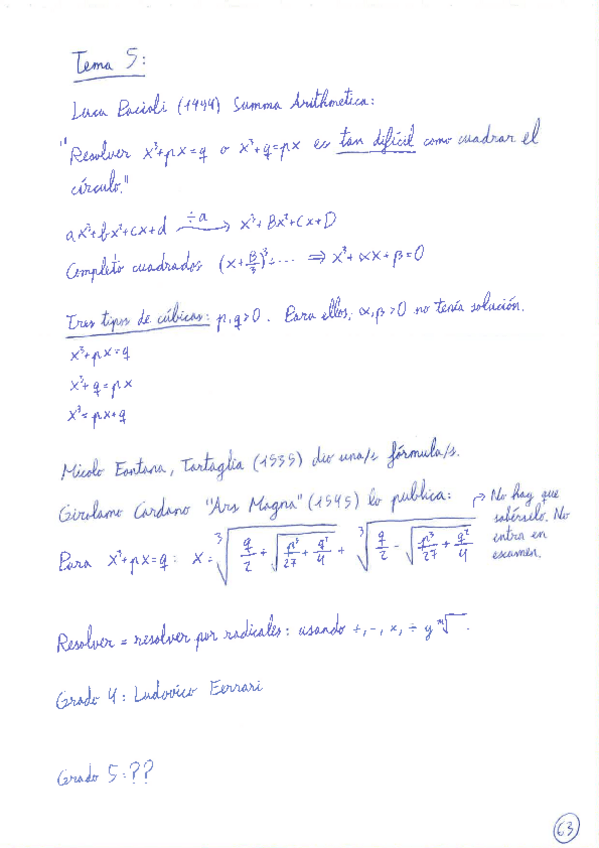 Tema 5:
Luca Pacioli (1494) Summa Arithmetica:
"Resolver x³+px=q o x³+q=px es tan difícil como cuadrar el
círculo."
ax³+bx²+cx+d —÷a→ x³+Bx²+Cx+D
Completo cuadrados (x+B/3)³+··· ⇒ x³+αx+β=0
Tres tipos de cúbicas: p,q>0. Para ellos, α,β>0 no tenía solución.
x³+px=q
x³+q=px
x³=px+q
Nicolo Fontana, Tartaglia (1535) dio una/s fórmula/s.
Girolamo Cardano "Ars Magna" (1545) lo publica:
→ No hay que
sabérselo. No
entra en
examen.
Para x³+px=q: x=∛(q/2+√(p³/27+q²/4))+∛(q/2-√(p³/27+q²/4))
Resolver = resolver por radicales: usando +,-,×,÷ y ᵐ√.
Grado 4: Ludovico Ferrari
Grado 5:??
63